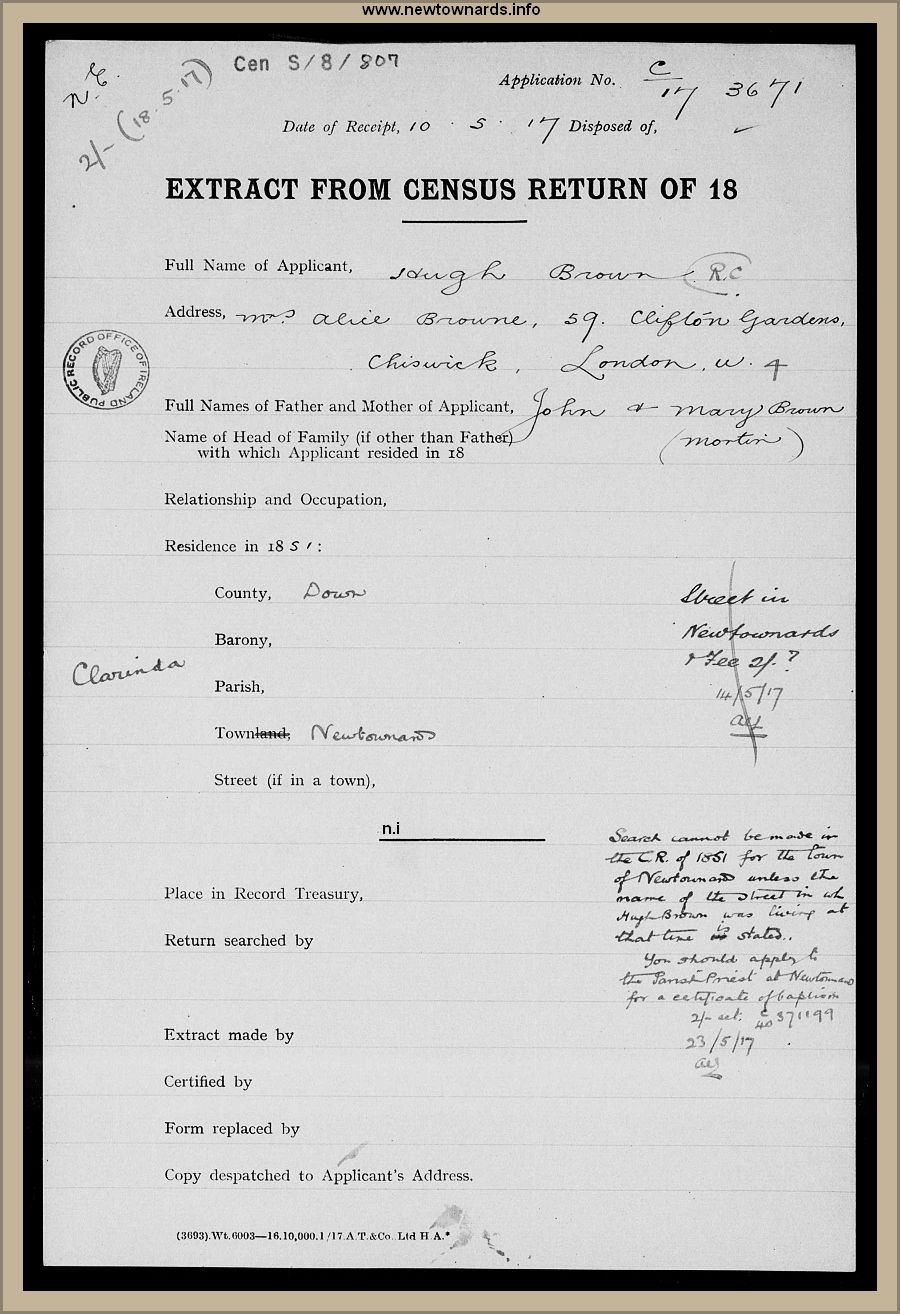 www.newtownards.info
N.E.
2/- (18.5.17)
Cen S/8/807
Application No. C/17 3671
Date of Receipt, 10 . 5 . 17 Disposed of,
EXTRACT FROM CENSUS RETURN OF 18
Full Name of Applicant, Hugh Brown R.C.
Address, Mrs Alice Browne, 59. Clifton Gardens,
Chiswick, London, W. 4
PUBLIC RECORD OFFICE OF IRELAND
Full Names of Father and Mother of Applicant, John & Mary Brown
Name of Head of Family (if other than Father) (Martin)
with which Applicant resided in 18
Relationship and Occupation,
Residence in 1851:
County, Down
Street in
Newtownards
& Fee 2/- ?
14/5/17
Barony,
Clarinda
Parish,
Townland, Newtownards
Street (if in a town),
n.i
Search cannot be made in
the C.R. of 1851 for the town
of Newtownards unless the
name of the street in wh
Hugh Brown was living at
that time is stated.
You should apply to
the Parish Priest at Newtownards
for a certificate of baptism
2/- ret. C/40 371199
23/5/17
Place in Record Treasury,
Return searched by
Extract made by
Certified by
Form replaced by
Copy despatched to Applicant's Address.
(3693).Wt.6003—16.10,000.1/17.A.T.&Co.,Ltd H.A.